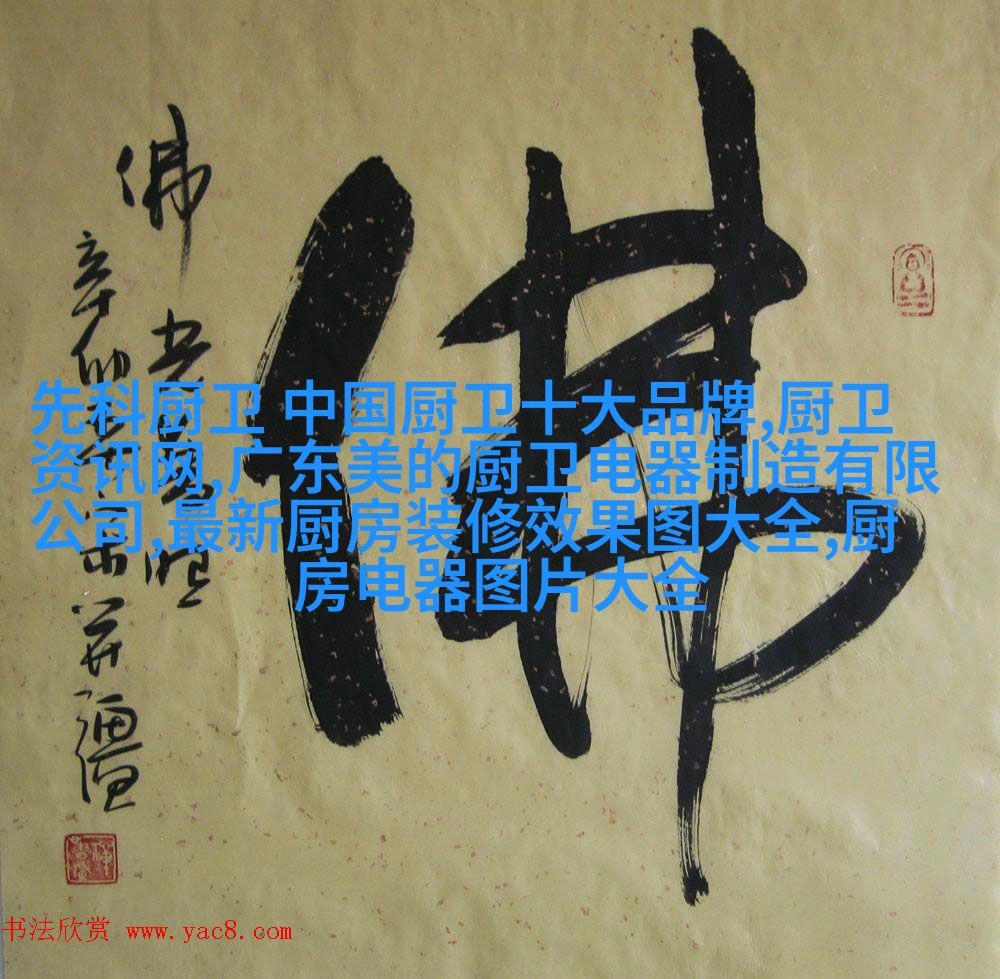 佛
佛
先科厨卫 中国厨卫十大品牌,厨卫
资讯网,广东美的厨卫电器制造有限
公司,最新厨房装修效果图大全,厨
房电器图片大全
书法欣赏 www.yac8.com